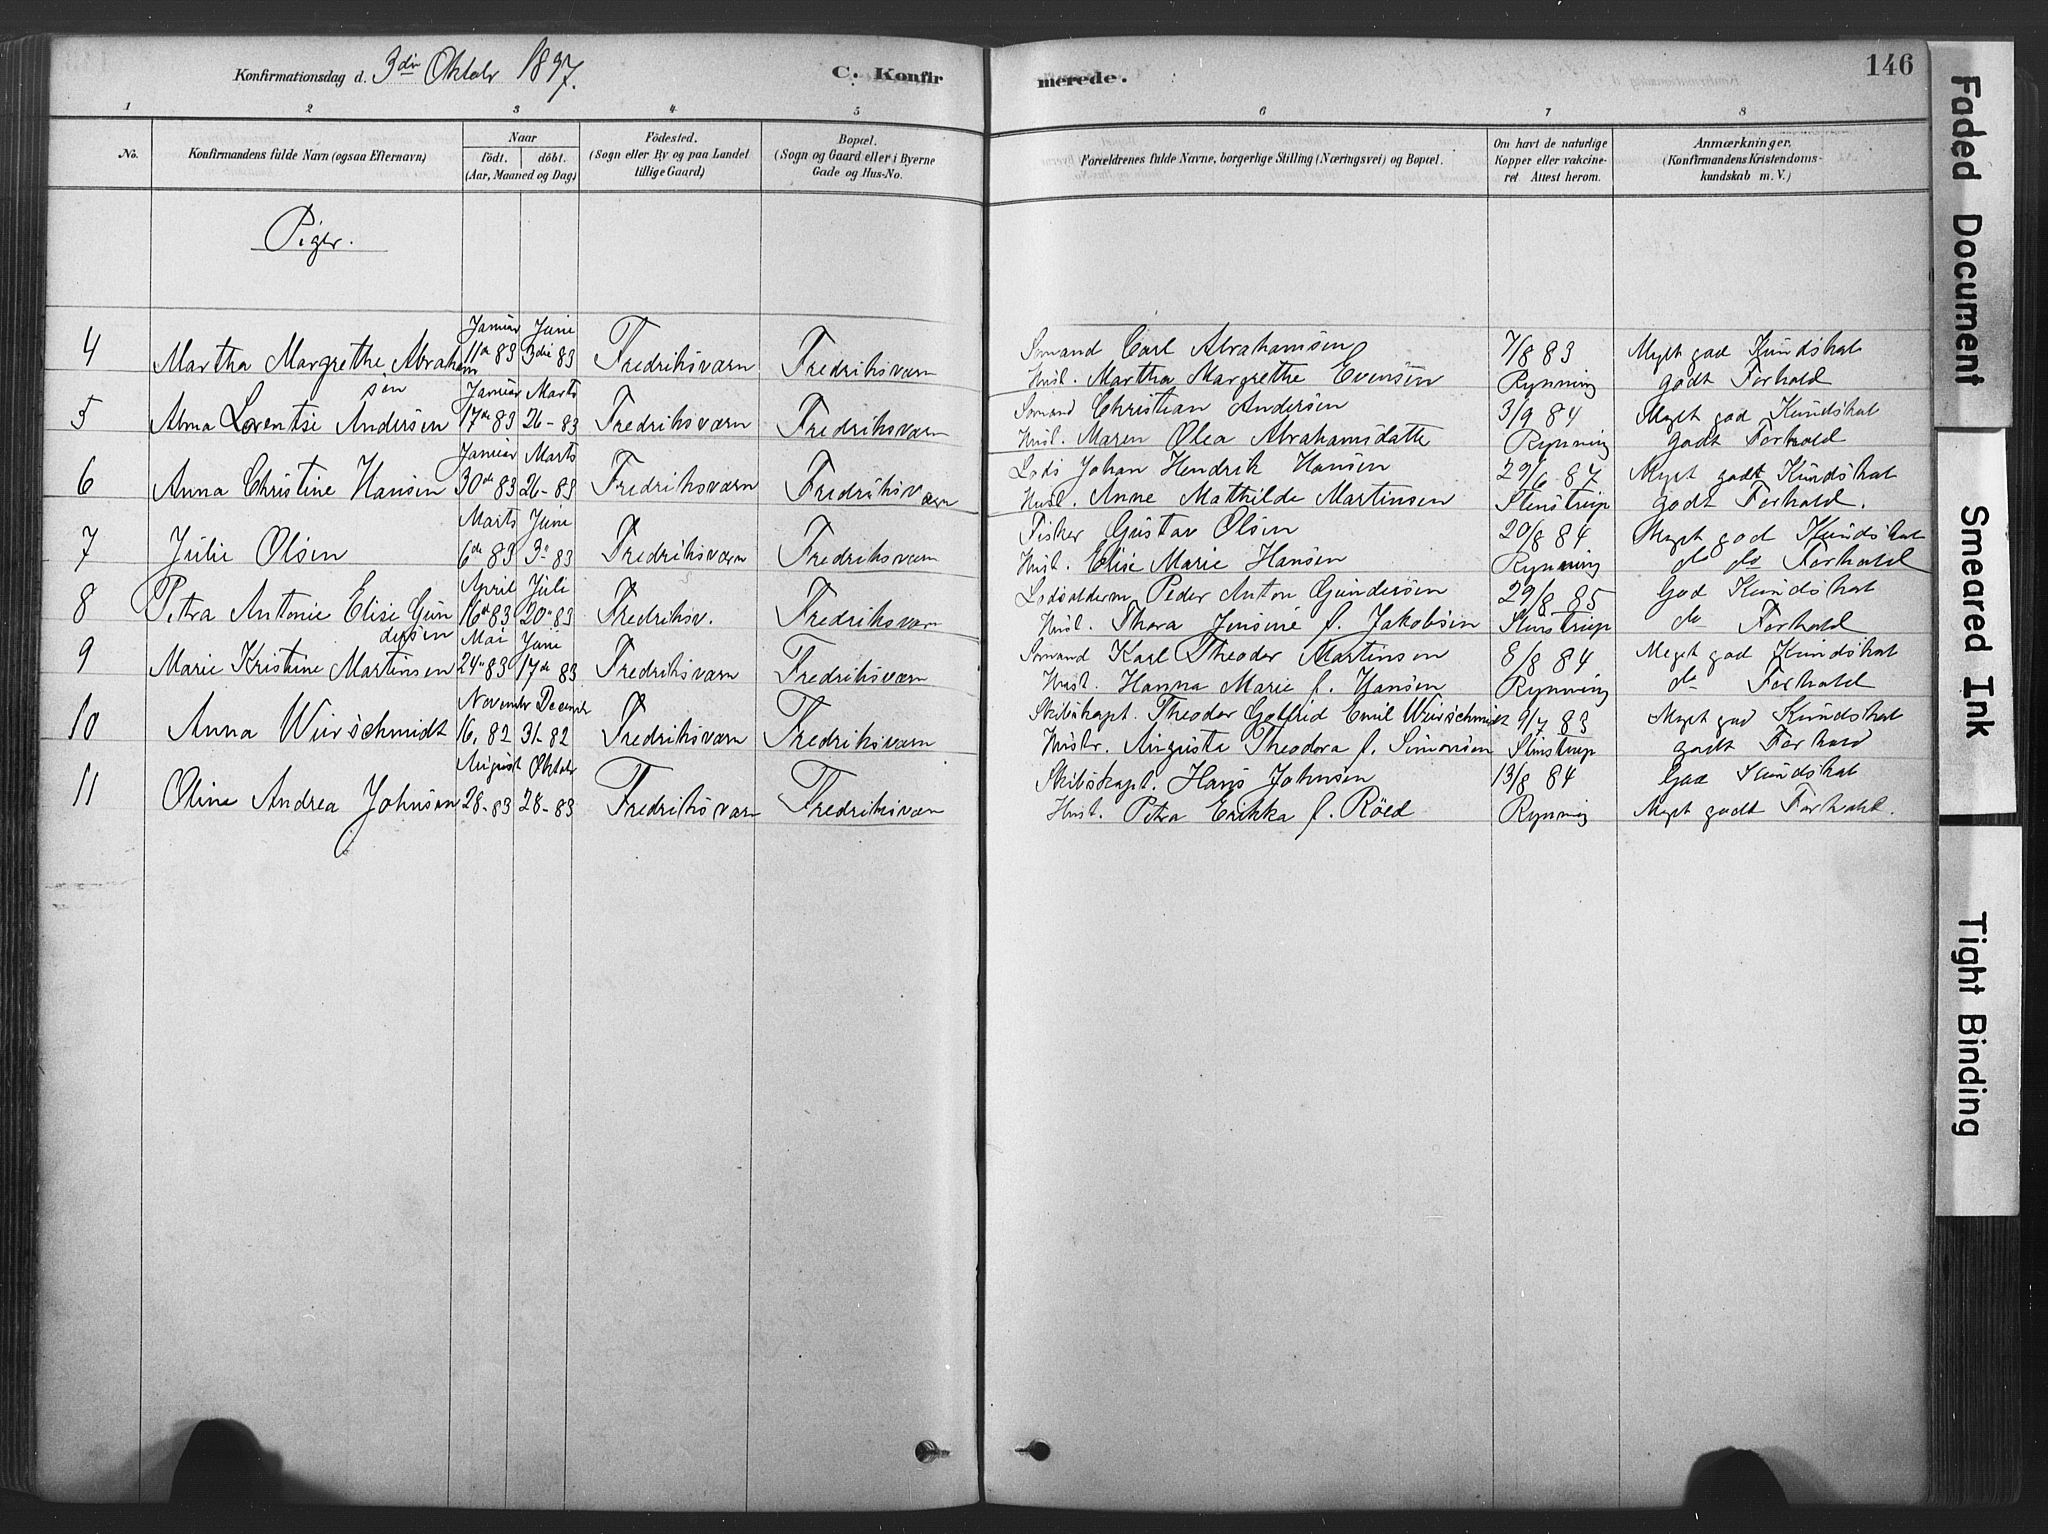 Konfirmationsdag d. 3die Oktobr 1897.
C. Konfir
merede.
146
1 2 3 4 5 6 7 8
No.
Konfirmandens fulde Navn (ogsaa Efternavn)
Naar
födt. döbt.
(Aar, Maaned og Dag)
Födested.
(Sogn eller By og paa Landet
tillige Gaard)
Bopæl.
(Sogn og Gaard eller i Byerne
Gade og Hus-No.
Forældrenes fulde Navne, borgerlige Stilling (Næringsvei) og Bopæl.
Om havt de naturlige
Kopper eller vakcine-
ret Attest herom.
Anmærkninger.
(Konfirmandens Kristendoms-
kundskab m. V.)
Piger.
Januar Juni
4 Martha Margrethe Abraham 11te 83 3die 83 Fredriksværn Fredriksværn Sømand Carl Abrahamsen 7/8 83 Meget god Kundskab
sen Hust. Martha Margrethe Evensen Rynning godt Forhold
Januar Marts
5 Alma Lorentse Andersen 17de 83 26- 83 Fredriksværn Fredriksværn Sømand Christian Andersen 3/9 84 Meget god Kundskab
Hust. Maren Olea Abrahamsdatte Rynning godt Forhold
Januar Marts
6 Anna Christine Hansen 30de 83 26- 83 Fredriksværn Fredriksværn Lods Johan Hendrik Hansen 29/6 87 Meget godt Kundskab
Hust. Anne Mathilde Martinsen Stenstrup godt Forhold.
Marts Juni
7 Julie Olsen 6te 83 3" 83 Fredriksværn Fredriksværn Fisker Gustav Olsen 20/8 84 Meget god Kundskab
Hust. Elise Marie Hansen Rynning do do Forhold
April Juli
8 Petra Antonie Elise Gun 16de 83 20" 83 Fredriksv. Fredriksværn Lodsolderm Peder Anton Gundersen 29/8 85 God Kundskab
dersen Hust. Thora Jensine f. Jakobsen Stenstrup do Forhold
Mai Juni
9 Marie Kristine Martinsen 24" 83 17de 83 Fredriksværn Fredriksværn Sømand Karl Theodor Martinsen 8/8 84 Meget god Kundskab
Hust. Hanna Marie f. Hansen Rynning do Forhold
November December
10 Anna Wierschmidt 16, 82 31- 82 Fredriksværn Fredriksværn Skibskapt. Theodor Gotfrid Emil Wierschmidt 9/7 83 Meget god Kundskab
Hustr. Augusta Theodora f. Simonsen Stenstrup godt Forhold
August Oktobr
11 Oline Andrea Johnsen 28- 83 28- 83 Fredriksværn Fredriksværn Skibskapt. Hans Johnsen 13/8 84 God Kundskab
Hust. Petra Erikka f. Röed Rynning Meget godt Forhold.
Faded Document
Smeared Ink
Tight Binding